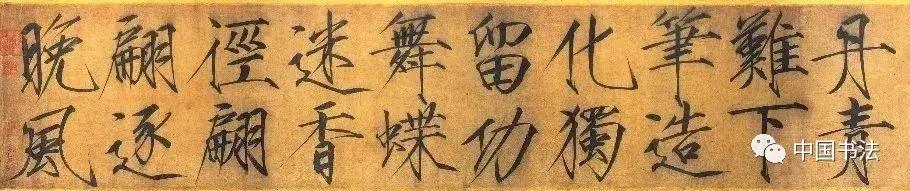 丹青
難下
筆造
化獨
留功
舞蝶
迷香
徑翩
翩逐
晚風
中国书法